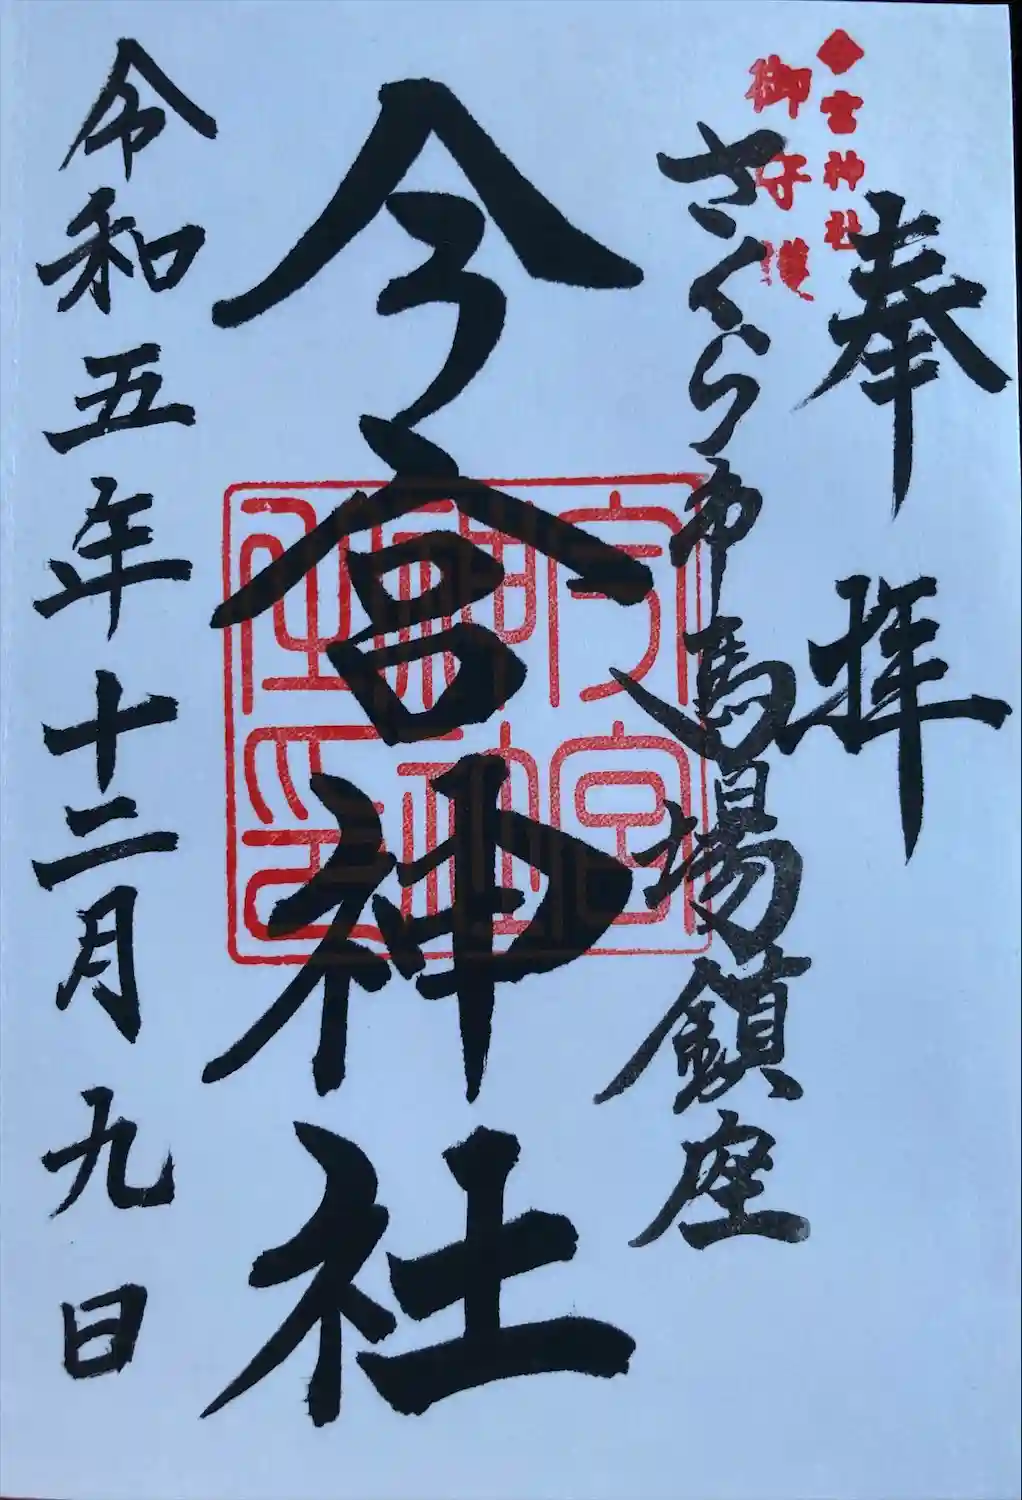 奉拝
今宮神社
御守護
さくら市馬場鎮座
今宮神社
今宮神社印
令和五年十二月九日